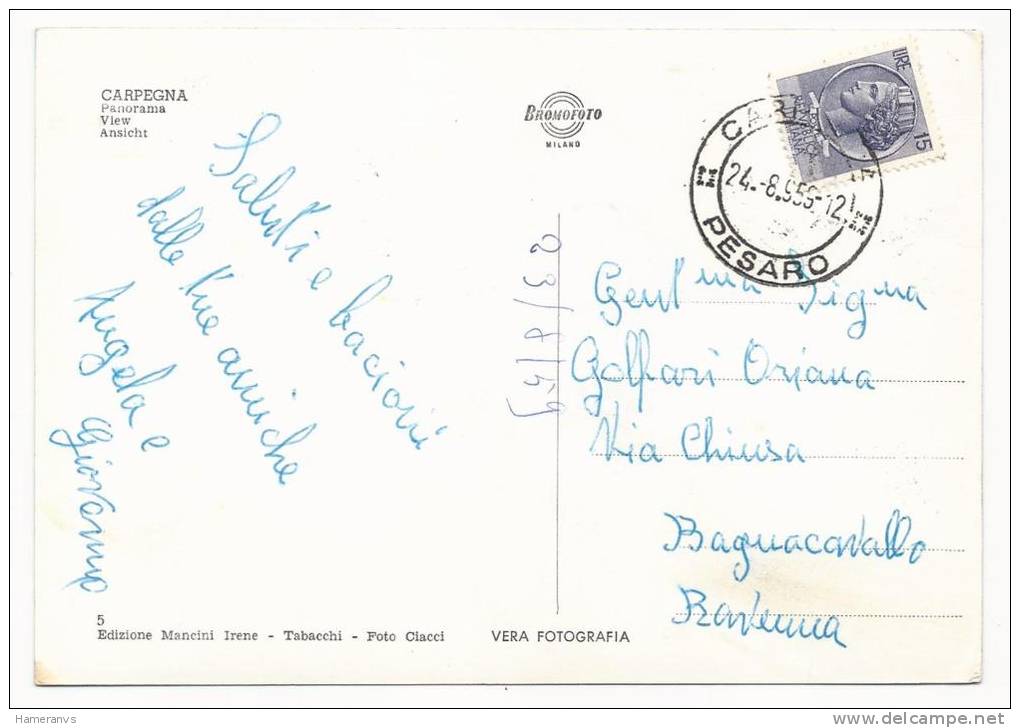 CARPEGNA
Panorama
View
Ansicht
BROMOFOTO
MILANO
LIRE
15
REPUBBLICA
ITALIANA
PESARO
Saluti e bacioni
dalle tue amiche
Angela e
23/8/59
Gent ma Sig na
Golfari Oriana
Via Chiusa
Bagnacavallo
Ravenna
5
Edizione Mancini Irene - Tabacchi - Foto Ciacci
VERA FOTOGRAFIA
Hameranvs
www.delcampe.net